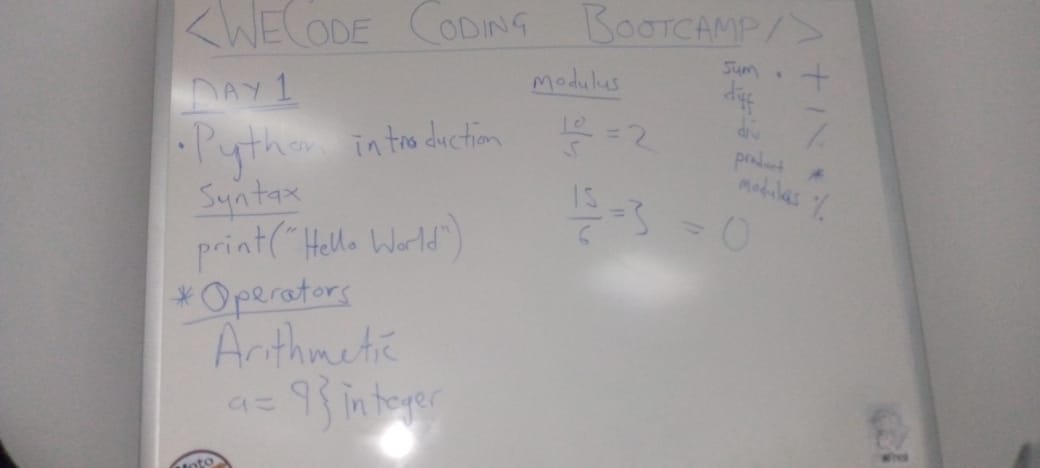 <WECODE CODING BOOTCAMP/>
DAY 1
• Python introduction
Syntax
print("Hello World")
* Operators
Arithmetic
a = 9} integer
modulus
10/5 = 2
15/6 = 3 = 0
sum • +
diff -
div /
product *
modulus %
Moto